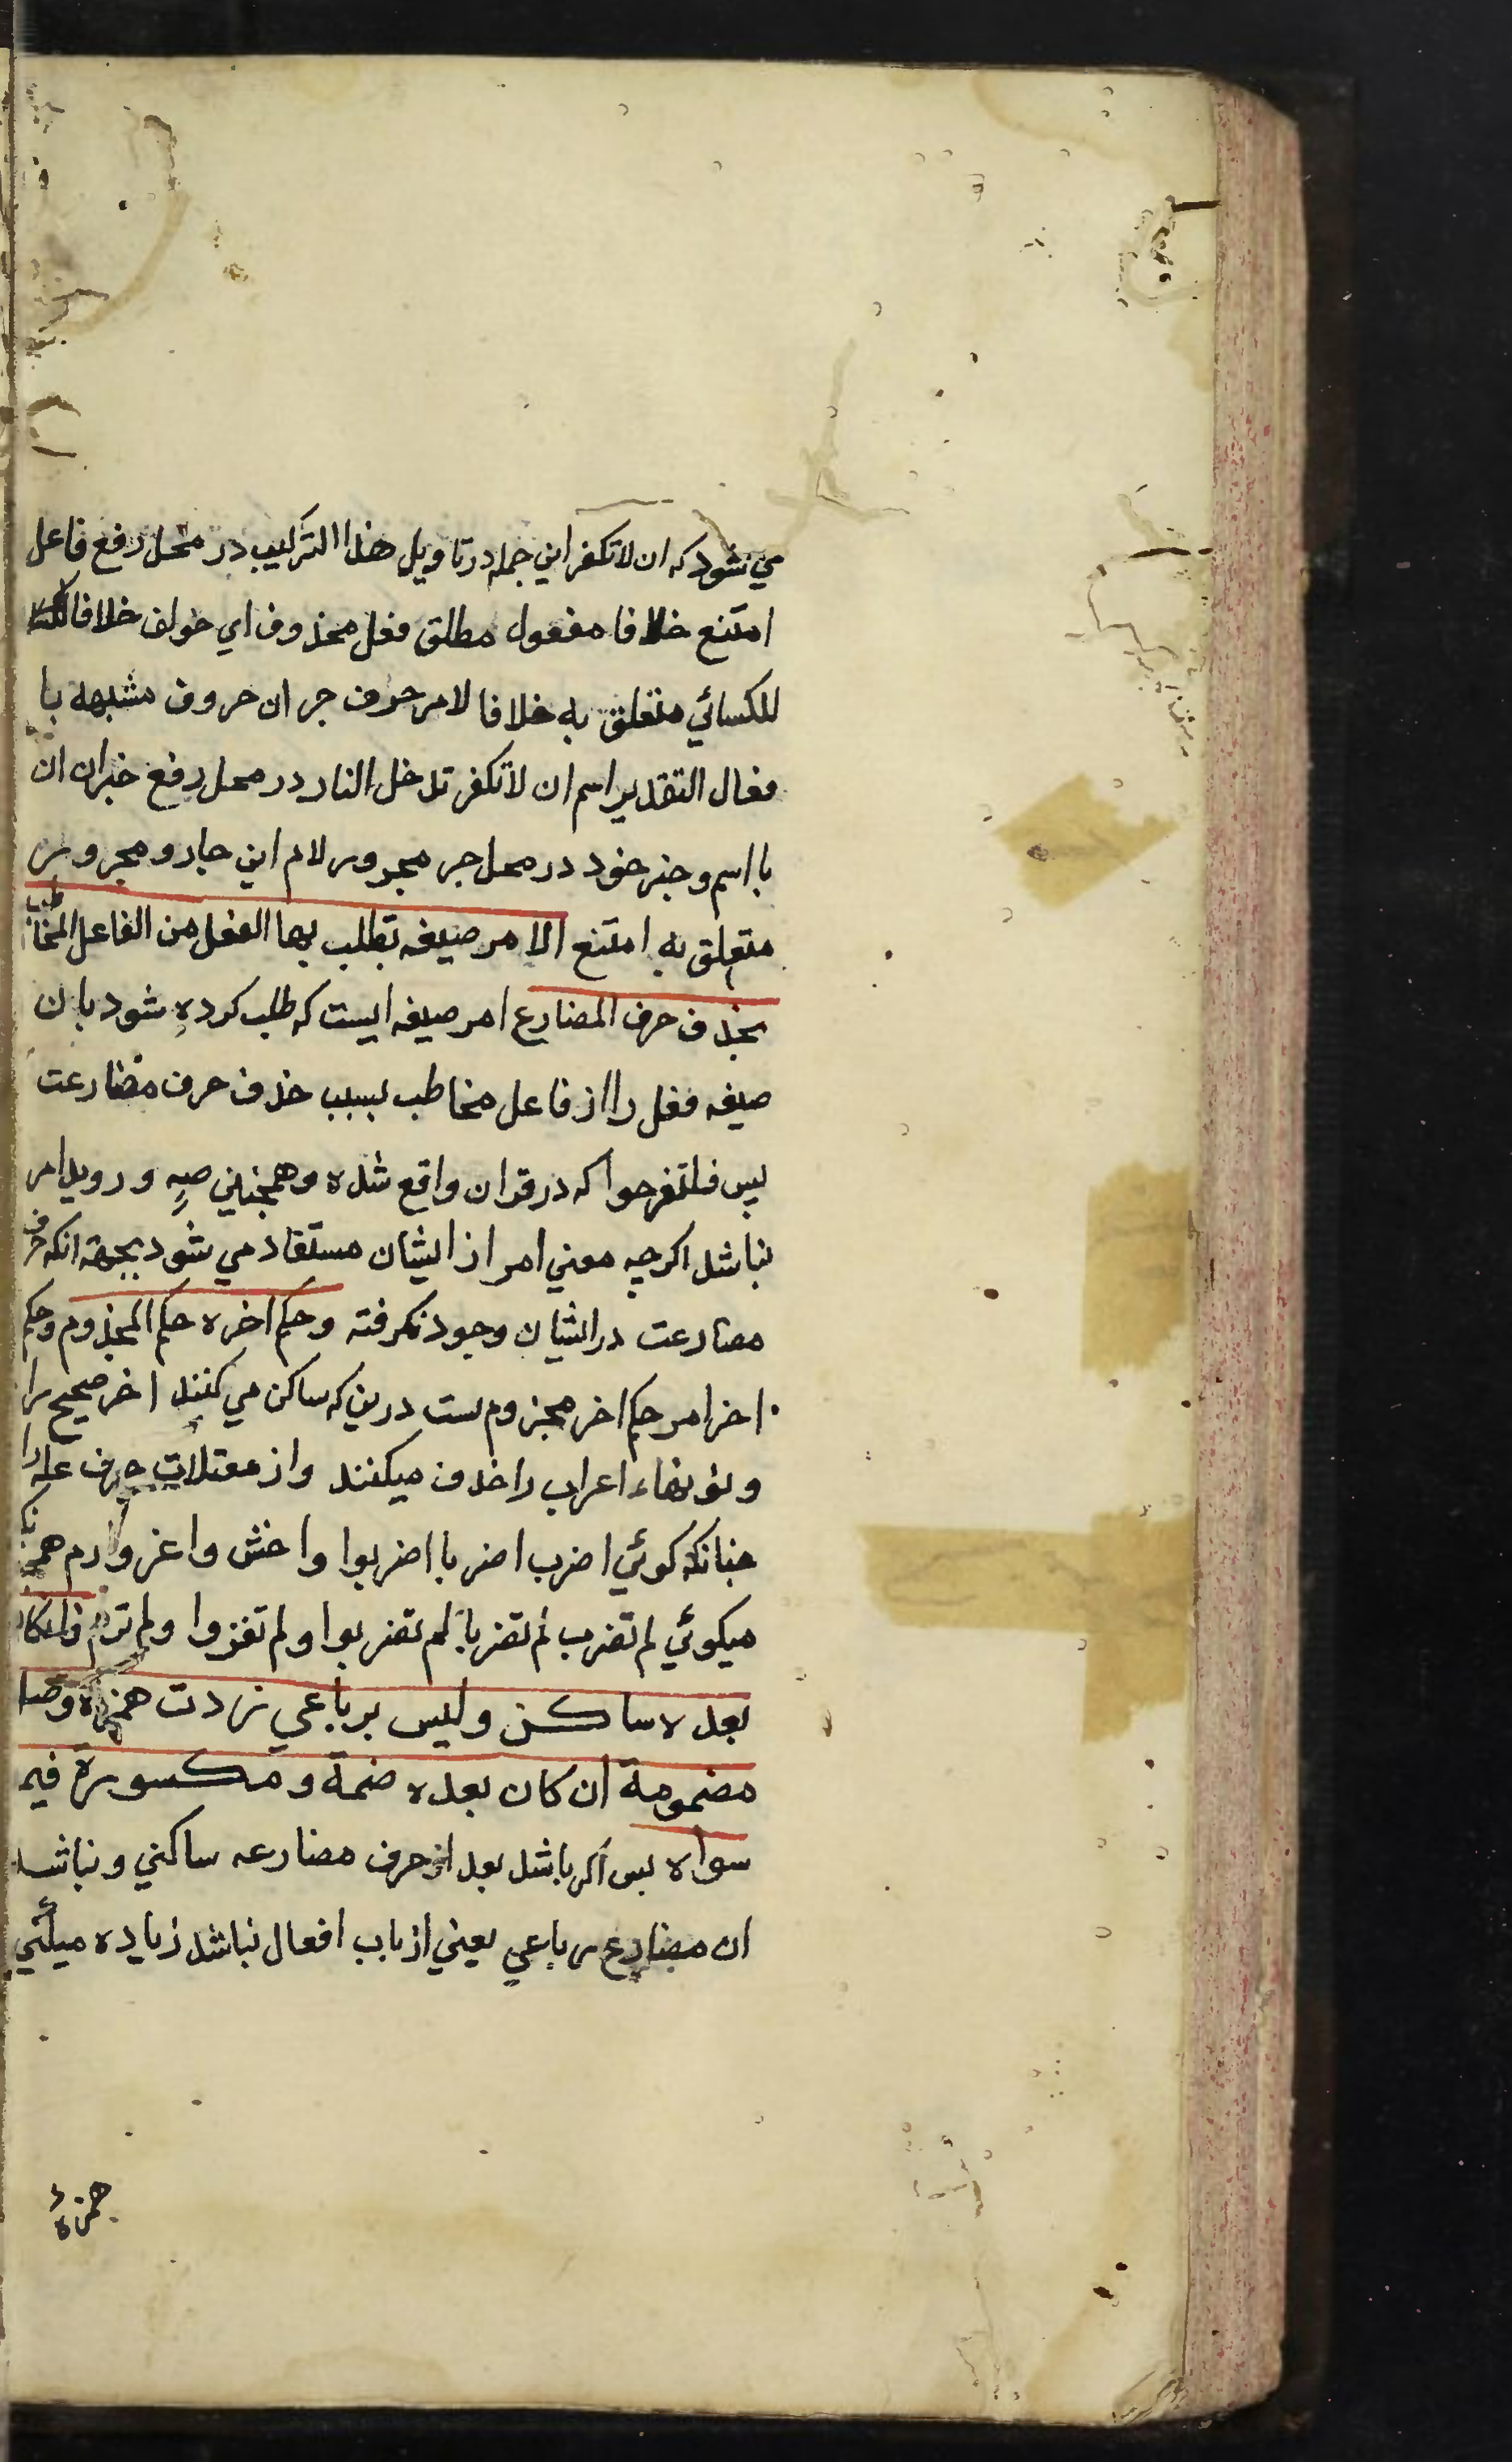 مي شود كه ان لا تكفر اين جمله در تاويل هذا التركيب در محل رفع فاعل
امتنع خلافا مفعول مطلق فعل محذوف اي خولف خلافا
للكسائي متعلق به خلافا لام حرف جر ان حروف مشبهه با
فعال التقدير اسم ان لا تكفر تدخل النار در محل رفع خبر ان ان
با اسم و خبر خود در محل جر مجرور لام اين جار و مجرور
متعلق به امتنع الامر صيغه تطلب بها الفعل من الفاعل المخاطب
بحذف حرف المضارع امر صيغه ايست كه طلب كرده شود بان
صيغه فعل را از فاعل مخاطب بسبب حذف حرف مضارعت
پس فلتفرحوا كه در قران واقع شده و همچنين صه و رويد امر
نباشد اكرچه معني امر از ايشان مستفاد مي شود بجهة انكه حرف
مضارعت در ايشان وجود نكرفته و حكم اخره حكم المجزوم و حكم
اخر امر حكم اخر مجزوم ست درين كه ساكن مي كنند اخر صحيح را
و نونهاء اعراب را حذف ميكنند و از معتلات حرف عله را
چنانكه كوئي اضرب اضربا اضربوا و اخش و اغز و ارم همچنانكه
ميكوئي لم تضرب لم تضربا لم تضربوا و لم تغزوا و لم ترم فان كان
بعده ساكن و ليس برباعي زدت همزة وصل
مضمومة ان كان بعده ضمة و مكسورة فيما
سواه پس اكر باشد بعد از حرف مضارعه ساكني و نباشد
ان مضارع رباعي يعني از باب افعال نباشد زياده ميكني
همزهٔ